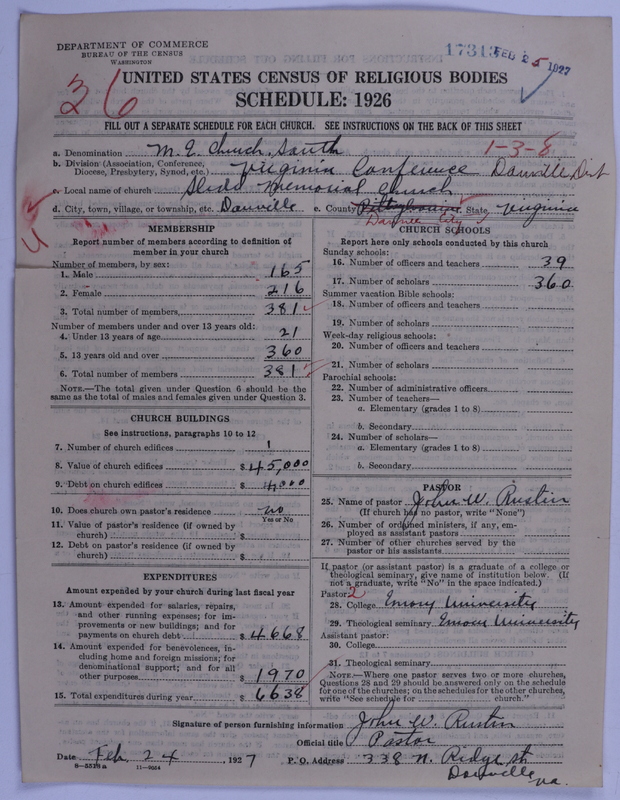 DEPARTMENT OF COMMERCE
BUREAU OF THE CENSUS
WASHINGTON
17313 FEB 25 1927
36
UNITED STATES CENSUS OF RELIGIOUS BODIES
SCHEDULE: 1926
FILL OUT A SEPARATE SCHEDULE FOR EACH CHURCH. SEE INSTRUCTIONS ON THE BACK OF THIS SHEET
1-3-8
a. Denomination M. E. Church, South
b. Division (Association, Conference, Diocese, Presbytery, Synod, etc.) Virginia Conference Danville, Dist
c. Local name of church Sledd Memorial Church
d. City, town, village, or township, etc. Danville e. County Pittsylvania State Virginia
Danville City
MEMBERSHIP
Report number of members according to definition of
member in your church
Number of members, by sex:
1. Male 165
2. Female 216
3. Total number of members 381
Number of members under and over 13 years old:
4. Under 13 years of age 21
5. 13 years old and over 360
6. Total number of members 381
NOTE.—The total given under Question 6 should be the
same as the total of males and females given under Question 3.
CHURCH BUILDINGS
See instructions, paragraphs 10 to 12
7. Number of church edifices 1
8. Value of church edifices $45,000
9. Debt on church edifices $4000
10. Does church own pastor's residence no
Yes or No
11. Value of pastor's residence (if owned by
church) $
12. Debt on pastor's residence (if owned by
church) $
EXPENDITURES
Amount expended by your church during last fiscal year
13. Amount expended for salaries, repairs,
and other running expenses; for im-
provements or new buildings; and for
payments on church debt $4668
14. Amount expended for benevolences, in-
cluding home and foreign missions; for
denominational support; and for all
other purposes $1970
15. Total expenditures during year $6638
CHURCH SCHOOLS
Report here only schools conducted by this church
Sunday schools:
16. Number of officers and teachers 39
17. Number of scholars 360
Summer vacation Bible schools:
18. Number of officers and teachers
19. Number of scholars
Week-day religious schools:
20. Number of officers and teachers
21. Number of scholars
Parochial schools:
22. Number of administrative officers
23. Number of teachers—
a. Elementary (grades 1 to 8)
b. Secondary
24. Number of scholars—
a. Elementary (grades 1 to 8)
b. Secondary
PASTOR
25. Name of pastor John W. Rustin
(If church has no pastor, write "None")
26. Number of ordained ministers, if any, em-
ployed as assistant pastors
27. Number of other churches served by the
pastor or his assistants
If pastor (or assistant pastor) is a graduate of a college or
theological seminary, give name of institution below. (If
not a graduate, write "No" in the space indicated.)
Pastor: 2
28. College Emory University
29. Theological seminary Emory University
Assistant pastor:
30. College
31. Theological seminary
NOTE.—Where one pastor serves two or more churches,
Questions 28 and 29 should be answered only on the schedule
for one of the churches; on the schedules for the other churches,
write "See schedule for church."
Signature of person furnishing information John W. Rustin
Official title Pastor
Date Feb 24, 1927 P. O. Address 338 N. Ridge St.
8-5513a 11-9054 Danville
Va.